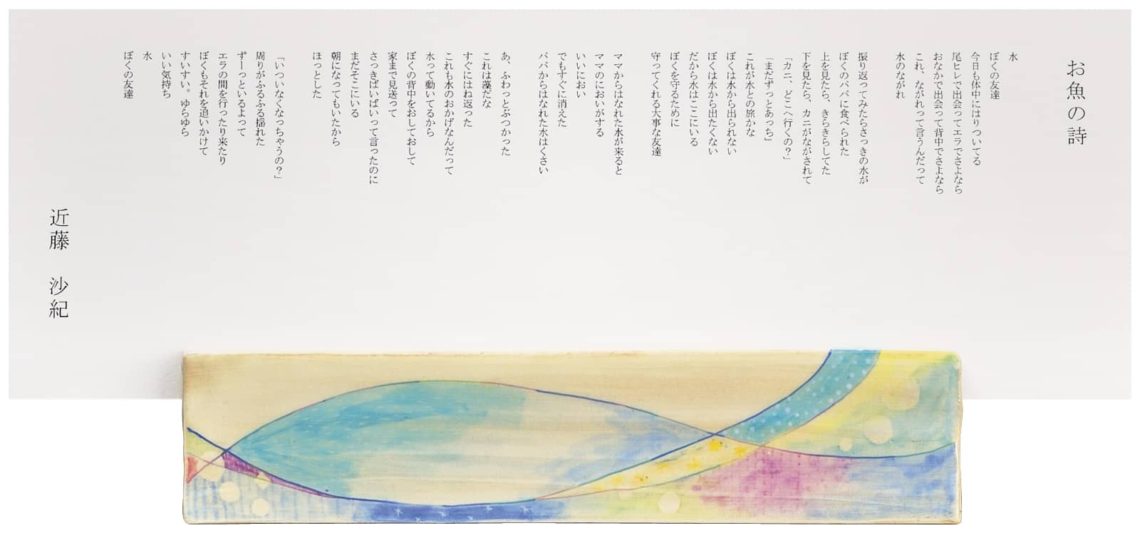 お魚の詩
水
ぼくの友達
今日も体中にはりついてる
尾ヒレで出会ってエラでさよなら
おなかで出会って背中でさよなら
これ、ながれって言うんだって
水のながれ
振り返ってみたらさっきの水が
ぼくのパパに食べられた
上を見たら、きらきらしてた
下を見たら、カニがながされて
「カニ、どこへ行くの?」
「まだずっとあっち」
これが水との旅かな
ぼくは水から出られない
ぼくは水から出たくない
だから水はここにいる
ぼくを守るために
守ってくれる大事な友達
ママからはなれた水が来ると
ママのにおいがする
いいにおい
でもすぐに消えた
パパからはなれた水はくさい
あ、ふわっとぶつかった
これは藻だな
すぐにはね返った
これも水のおかげなんだって
水って動いてるから
ぼくの背中をおしておして
家まで見送って
さっきばいばいって言ったのに
まだそこにいる
朝になってもいたから
ほっとした
「いついなくなっちゃうの?」
周りがふるふる揺れた
ずーっといるよって
エラの間を行ったり来たり
ぼくもそれを追いかけて
すいすい。ゆらゆら
いい気持ち
水
ぼくの友達
近藤 沙紀